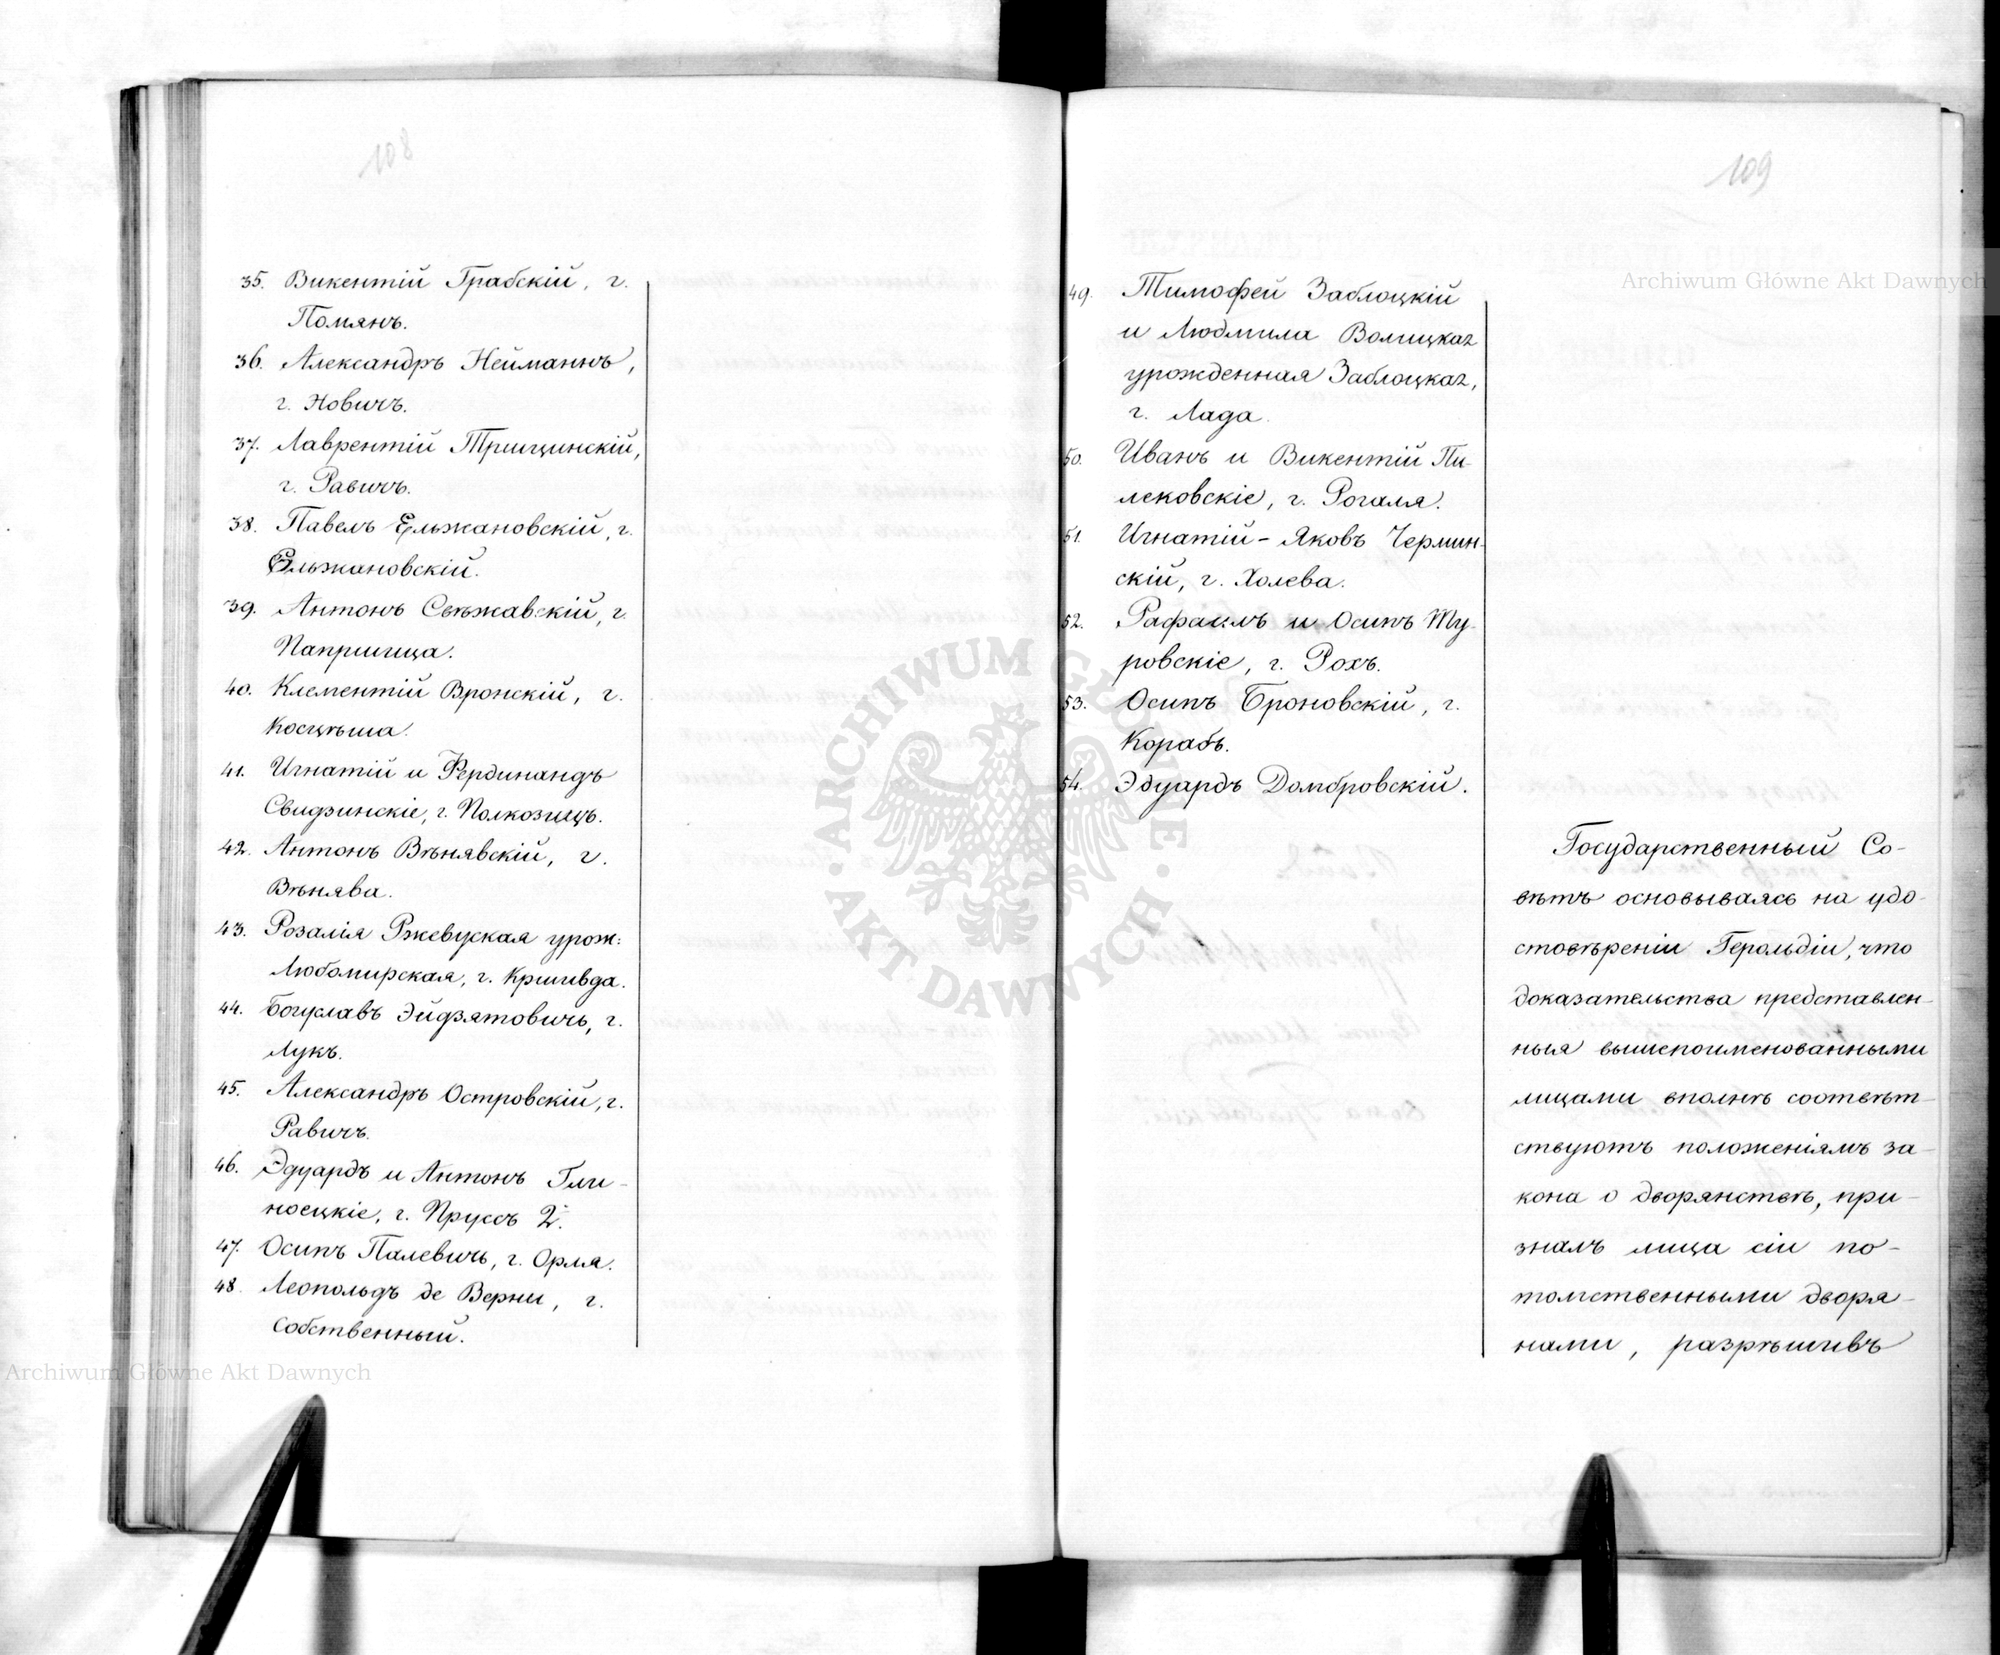 108
35. Викентій Грабскій, г.
Помянъ.
36. Александръ Нейманнъ,
г. Новичъ.
37. Лаврентій Трищинскій,
г. Равичъ.
38. Павелъ Ельжановскій, г.
Ельжановскій.
39. Антонъ Свѣжавскій, г.
Папршица.
40. Клементій Вронскій, г.
Косцѣша.
41. Игнатій и Фердинандъ
Свидзинскіе, г. Полкозицъ.
42. Антонъ Вѣнявскій, г.
Вѣнява.
43. Розалія Ржевуская урож:
Любомирская, г. Кршивда.
44. Богуславъ Эйдзятовичъ, г.
Лукъ.
45. Александръ Островскій, г.
Равичъ.
46. Эдуардъ и Антонъ Гли-
ноецкіе, г. Пруссъ 2.
47. Осипъ Палевичь, г. Орля.
48. Леопольдъ де Верни, г.
Собственный.
109
49. Тимофей Заблоцкій
и Людмила Волицкая
урожденная Заблоцкая,
г. Лада.
50. Иванъ и Викентій Пи-
лековскіе, г. Рогаля.
51. Игнатій-Яковъ Чермин-
скій, г. Холева.
52. Рафаилъ и Осипъ Ту-
ровскіе, г. Рохъ.
53. Осипъ Броновскій, г.
Корабъ.
54. Эдуардъ Домбровскій.
Государственный Со-
вѣтъ основываясь на удо-
стовѣреніи Герольдіи, что
доказательства представлен-
ныя вышепоименованными
лицами вполнѣ соотвѣт-
ствуютъ положеніямъ за-
кона о дворянствѣ, при-
зналъ лица сіи по-
томственными дворя-
нами, разрѣшивъ
Archiwum Główne Akt Dawnych
ARCHIWUM GŁÓWNE · AKT DAWNYCH ·
Archiwum Główne Akt Dawnych